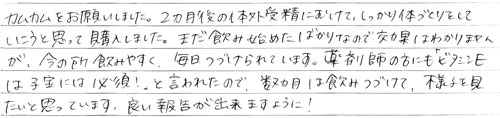 カムカムをお願いしました。2カ月後の体外受精にむけて、しっかり体づくりをして
いこうと思って購入しました。まだ飲み始めたばかりなので効果はわかりません
が、今の所飲みやすく、毎日つづけられています。薬剤師の方にも「ビタミンE
は子宝には必須!」と言われたので、数カ月は飲みつづけて、様子を見
たいと思っています。良い報告が出来ますように!